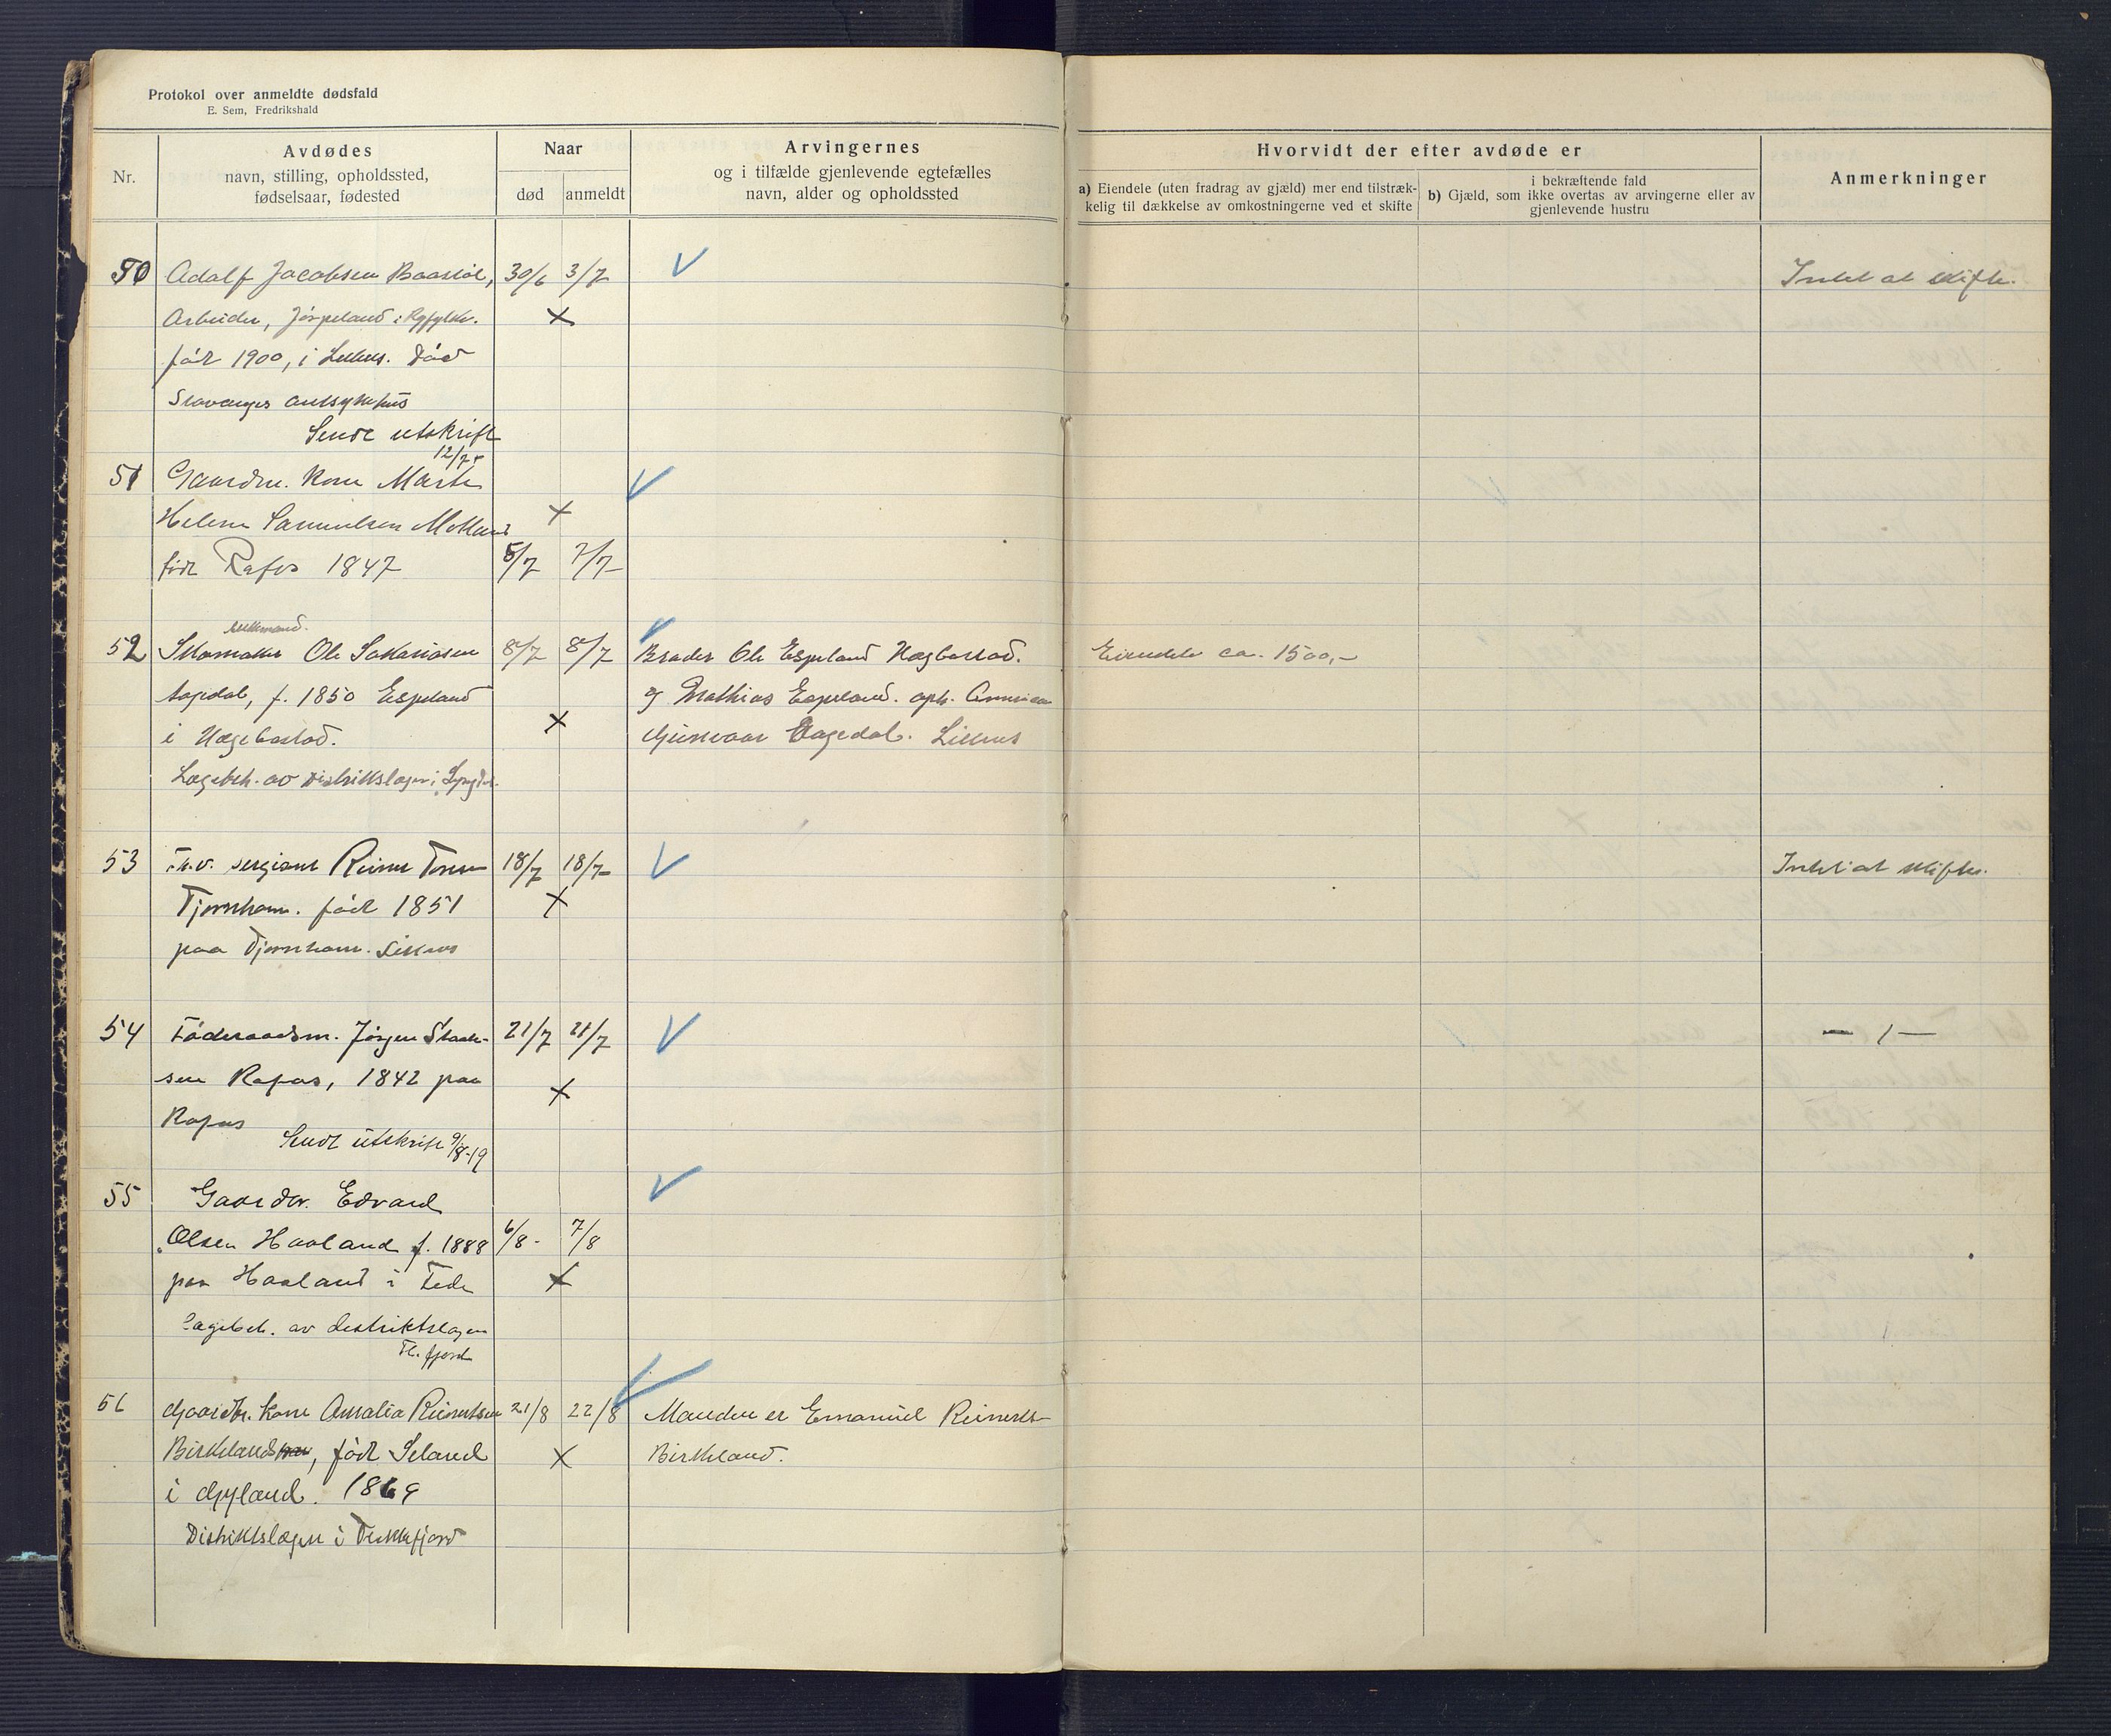 Protokol over anmeldte dødsfald
E. Sem, Fredrikshald
Nr.
Avdødes
navn, stilling, opholdssted,
fødselsaar, fødested
Naar
død
anmeldt
Arvingernes
og i tilfælde gjenlevende egtefælles
navn, alder og opholdssted
Hvorvidt der efter avdøde er
a) Eiendele (uten fradrag av gjæld) mer end tilstræk-
kelig til dækkelse av omkostningerne ved et skifte
i bekræftende fald
b) Gjæld, som ikke overtas av arvingerne eller av
gjenlevende hustru
Anmerkninger
50 Adolf Jacobsen 30/6 3/7 Intet at skifte.
Arbeider, Jørpeland i Ryfylke.
født 1900, i Liknes. Død
Stavanger amtssykehus
Sendt utskrift
12/7
51 Gaardm. kone Marte
Helene Samuelsen Moland
født Rafos 1847 5/7 7/7
52 Skomaker Ole Sakariasen 8/7 8/7 Broder Ole Espeland Hægbostad. Eiendele ca. 1500,-
Aagedal, f. 1850 Espeland og Mathias Espeland. oph. Amerika
i Hægebostad. Gunvaar Aagedal. Liknes
Lægebeh. av Distriktslægen i Lyngdal.
53 F.v. sergiant Reiner Tonsen 18/7 18/7 Intet at skifte.
Tjomham. født 1851
paa Tjomham. Liknes
54 Føderaadsm. Jørgen Isaak- 21/7 21/7 - 1 -
sen Rafos, 1842 paa
Rafos
Sendt utskrift 9/8-19
55 Gaardbr. Edvard
Olsen Haaland f. 1888 6/8 - 7/8
paa Haaland i Feda
Lægebeh. av distriktslægen
Fl. fjord
56 Gaardbr. kone Amalia Reinertsen 21/8 22/8 Manden er Emanuel Reinerts
Birkeland, født Seland Birkeland.
i Gyland. 1869
Distriktslægen i Flekkefjord